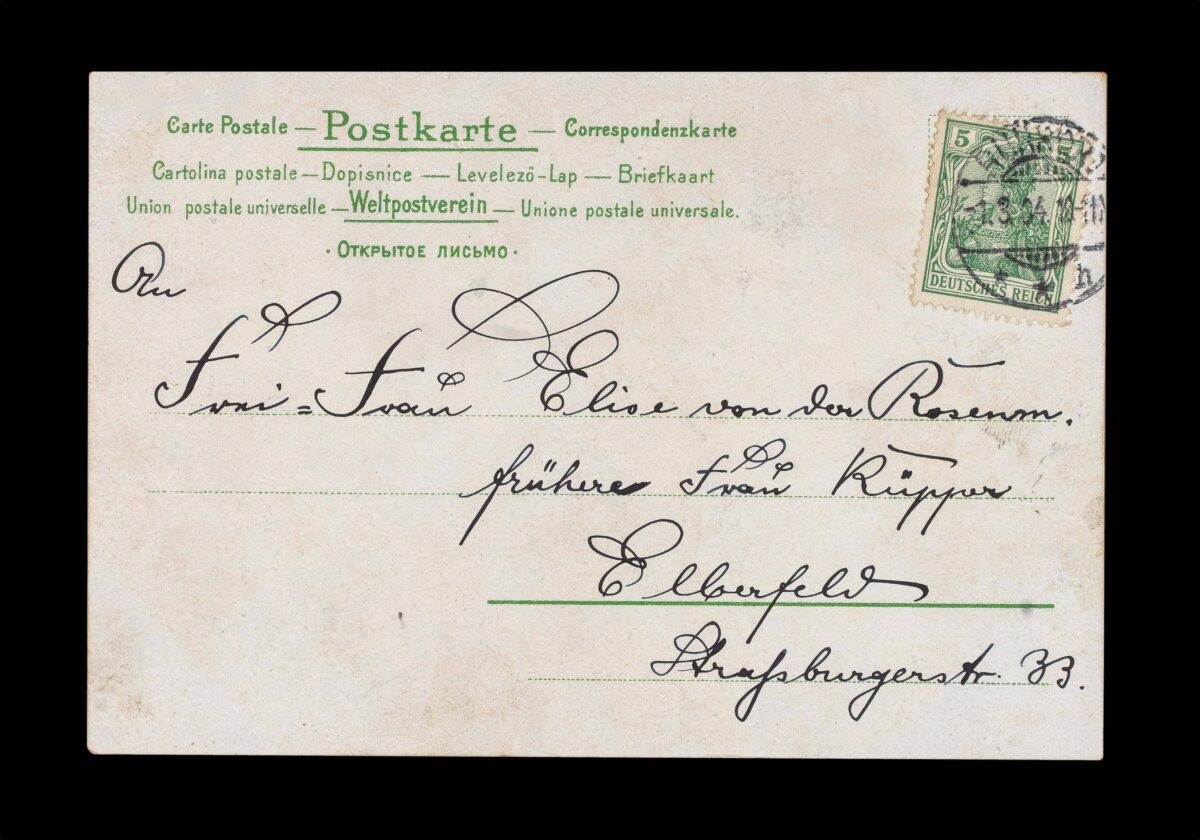 Carte Postale — Postkarte — Correspondenzkarte
Cartolina postale — Dopisnice — Levelező-Lap — Briefkaart
Union postale universelle — Weltpostverein — Unione postale universale.
· Открытое письмо ·
5
DEUTSCHES REICH
1.3.04.
h
An
Frei=Frau Elise von der Rosenm.
frühere Frau Küpper
Elberfeld
Straßburgerstr. 33.